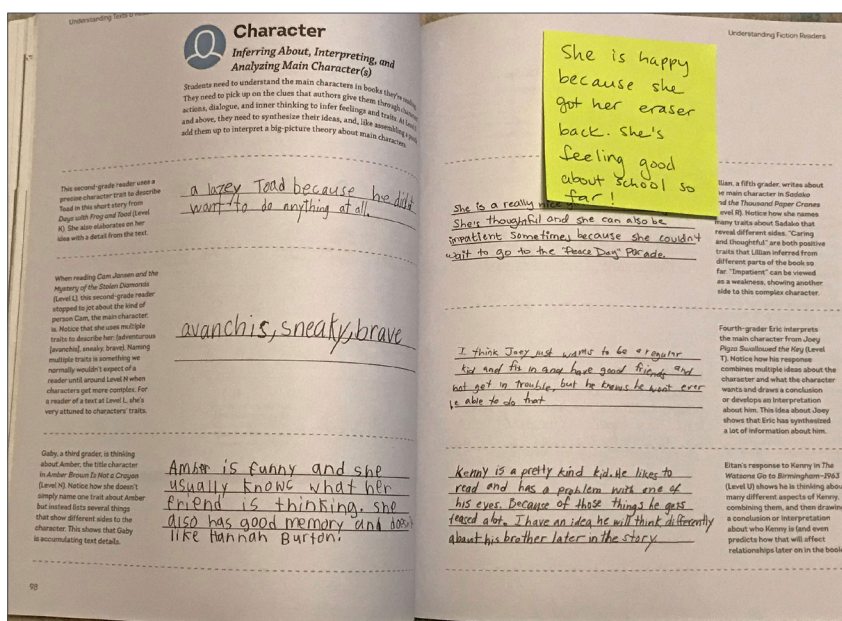 Understanding Texts
Character
Inferring About, Interpreting, and
Analyzing Main Character(s)
Students need to understand the main characters in books they're reading.
They need to pick up on the clues that authors give them through
actions, dialogue, and inner thinking to infer feelings and traits. At
and above, they need to synthesize their ideas, and, like assembling a
add them up to interpret a big-picture theory about main characters.
This second-grade reader uses a
precise character trait to describe
Toad in this short story from
Days with Frog and Toad (Level
K). She also elaborates on her
idea with a detail from the text.
a lazey Toad because he didt
want to do anything at all.
When reading Cam Jansen and the
Mystery of the Stolen Diamonds
(Level L), this second-grade reader
stopped to jot about the kind of
person Cam, the main character,
is. Notice that she uses multiple
traits to describe her: (adventurous
[avanchis], sneaky, brave). Naming
multiple traits is something we
normally wouldn't expect of a
reader until around Level N when
characters get more complex. For
a reader of a text at Level L, she's
very attuned to characters' traits.
avanchis, sneaky, brave
Gaby, a third grader, is thinking
about Amber, the title character
in Amber Brown Is Not a Crayon
(Level N). Notice how she doesn't
simply name one trait about Amber
but instead lists several things
that show different sides to the
character. This shows that Gaby
is accumulating text details.
Amber is funny and she
usually knows what her
friend is thinking. she
also has good memory and doesn't
like Hannah Burton.
98
Understanding Fiction Readers
She is happy
because she
got her eraser
back. She's
feeling good
about school so
far!
She is a really nice
She's thoughtful and she can also be
impatient sometimes because she couldn't
wait to go to the "Peace Day" Parade.
Lillian, a fifth grader, writes about
the main character in Sadako
and the Thousand Paper Cranes
(Level R). Notice how she names
many traits about Sadako that
reveal different sides. "Caring
and thoughtful" are both positive
traits that Lillian inferred from
different parts of the book so
far. "Impatient" can be viewed
as a weakness, showing another
side to this complex character.
I think Joey just wants to be a regular
kid and fix in and have good friends and
not get in trouble, but he knows he wont ever
be able to do that
Fourth-grader Eric interprets
the main character from Joey
Pigza Swallowed the Key (Level
T). Notice how his response
combines multiple ideas about the
character and what the character
wants and draws a conclusion
or develops an interpretation
about him. This idea about Joey
shows that Eric has synthesized
a lot of information about him.
Kenny is a pretty kind kid. He likes to
read and has a problem with one of
his eyes. Because of those things he gets
teased alot. I have an idea he will think differently
about his brother later in the story
Eitan's response to Kenny in The
Watsons Go to Birmingham–1963
(Level U) shows he is thinking about
many different aspects of Kenny,
combining them, and then drawing
a conclusion or interpretation
about who Kenny is (and even
predicts how that will affect
relationships later on in the book